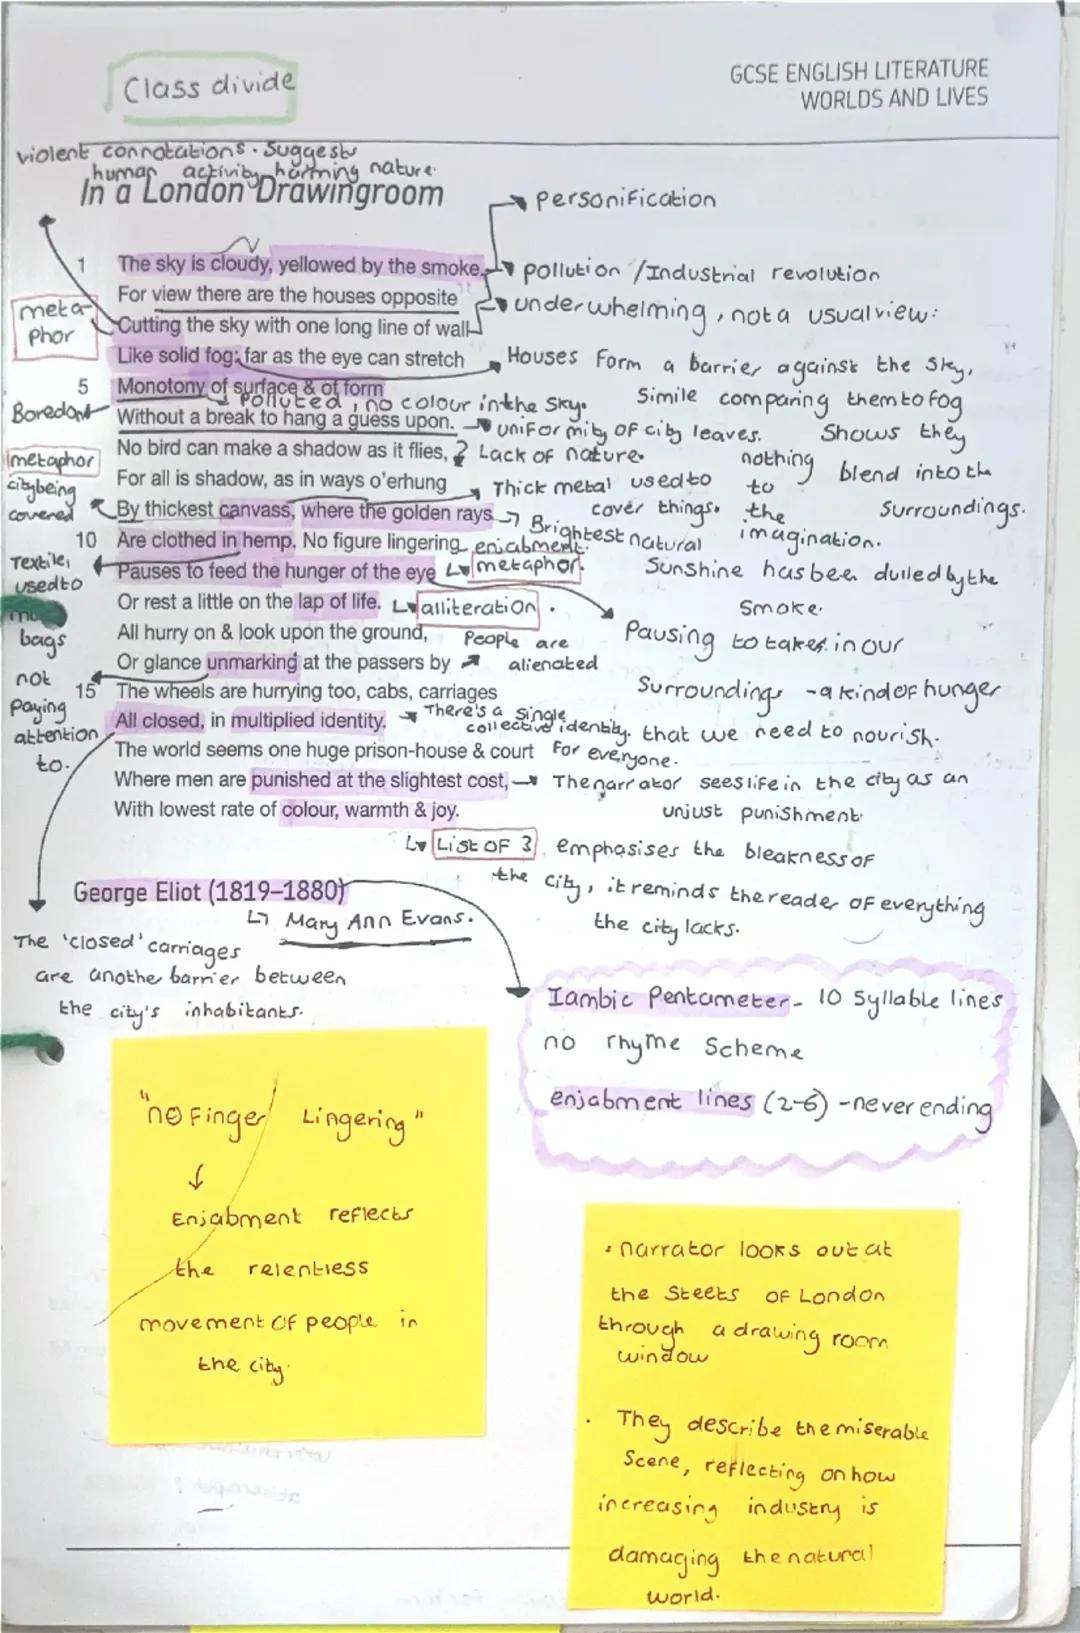 Class divide
GCSE ENGLISH LITERATURE
WORLDS AND LIVES
violent connotations. Suggests
human activity harming nature.
In a London Drawingroom
Personification
1 The sky is cloudy, yellowed by the smoke.
pollution / Industrial revolution
For view there are the houses opposite
underwhelming, not a usual view:
meta-
phor
Cutting the sky with one long line of wall
Like solid fog: far as the eye can stretch
Houses form a barrier against the sky,
5 Monotony of surface & of form
Polluted, no colour in the sky.
Simile comparing them to fog
Boredom
Without a break to hang a guess upon.
uniformity of city leaves.
nothing
to
the
imagination.
Shows they
blend into the
surroundings.
No bird can make a shadow as it flies,
? Lack of nature.
metaphor
city being
covered
For all is shadow, as in ways o'erhung
Thick metal used to
cover things.
By thickest canvass, where the golden rays
Brightest natural
10 Are clothed in hemp. No figure lingering
enjabment.
Textile,
used to
bags
Pauses to feed the hunger of the eye
metaphor.
Sunshine has been dulled by the
smoke.
Or rest a little on the lap of life.
alliteration.
Pausing to takes in our
All hurry on & look upon the ground,
People are
alienated
Or glance unmarking at the passers by
Surroundings - a kind of hunger
not
paying
attention
to.
15 The wheels are hurrying too, cabs, carriages
All closed, in multiplied identity.
There's a single
collective identity.
for everyone.
that we need to nourish.
The world seems one huge prison-house & court
Where men are punished at the slightest cost,
The narrator sees life in the city as an
unjust punishment.
With lowest rate of colour, warmth & joy.
List OF 3 emphasises the bleakness of
the city, it reminds the reader of everything
the city lacks.
George Eliot (1819–1880)
Mary Ann Evans.
The 'closed' carriages
are anothe barrier between
the city's inhabitants.
Iambic Pentameter - 10 Syllable lines
no rhyme Scheme
enjabment lines (2-6) - never ending
"no Finger Lingering"
Enjabment reflects
the relentless
movement of people in
the city.
· narrator looks out at
the Steets of London
through a drawing room
window
· They describe the miserable
Scene, reflecting on how
increasing industry is
damaging the natural
world.